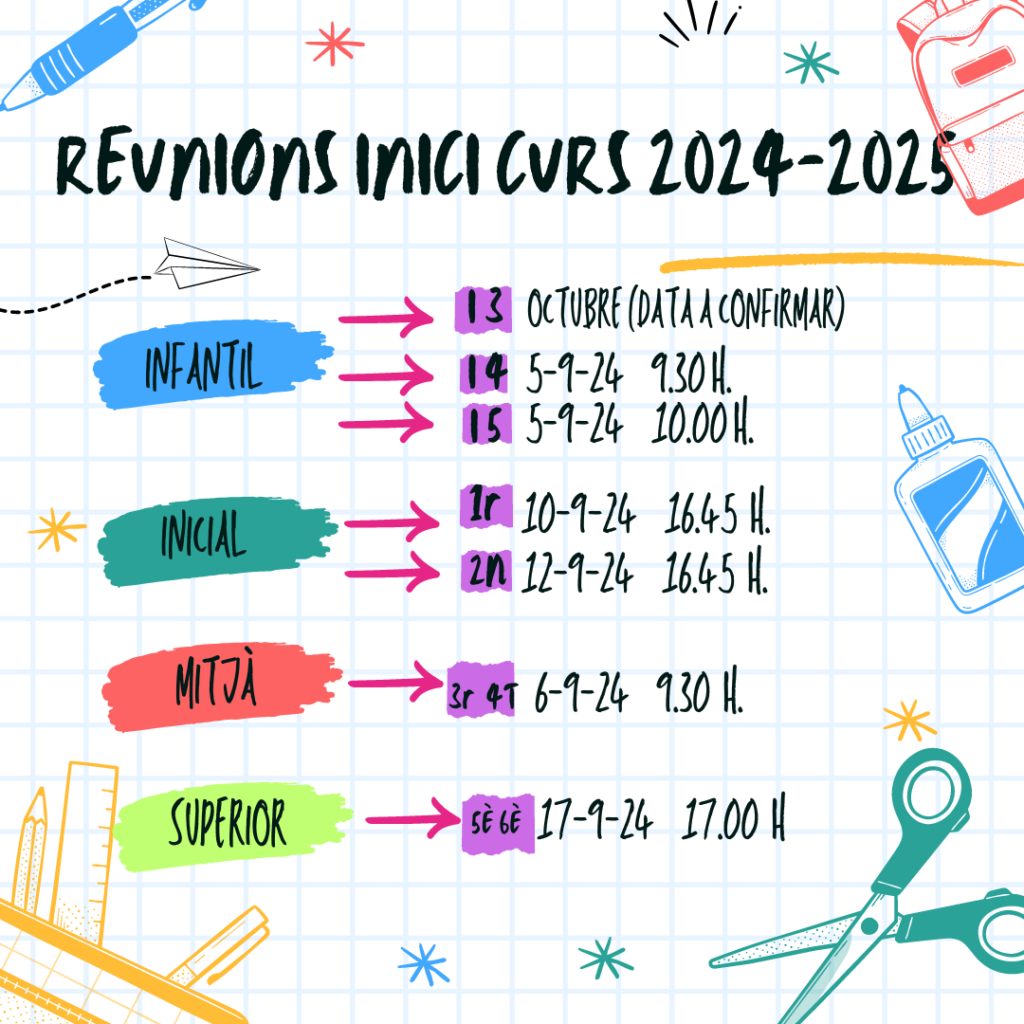 REUNIONS INICI CURS 2024-2025
INFANTIL
I3 OCTUBRE (DATA A CONFIRMAR)
I4 5-9-24 9.30 H.
I5 5-9-24 10.00 H.
INICIAL
1r 10-9-24 16.45 H.
2n 12-9-24 16.45 H.
MITJÀ
3r 4T 6-9-24 9.30 H.
SUPERIOR
5È 6È 17-9-24 17.00 H